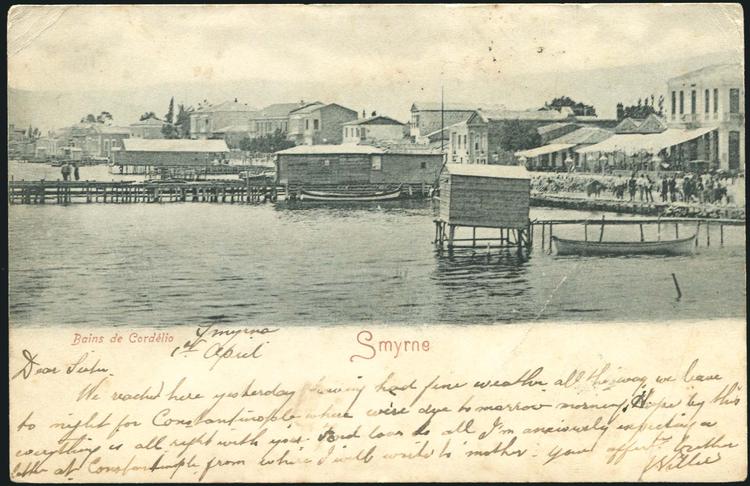 Bains de Cordélio
Smyrna
1st April
Smyrne
Dear Sister.
We reached here yesterday having had fine weather all the way we leave
to night for Constantinople where we're due tomorrow morning, Hope by this
everything is all right with you. Fond love to all I'm anxiously expecting a
letter at Constantinople from where I will write to mother. Your affect. brother
Willie